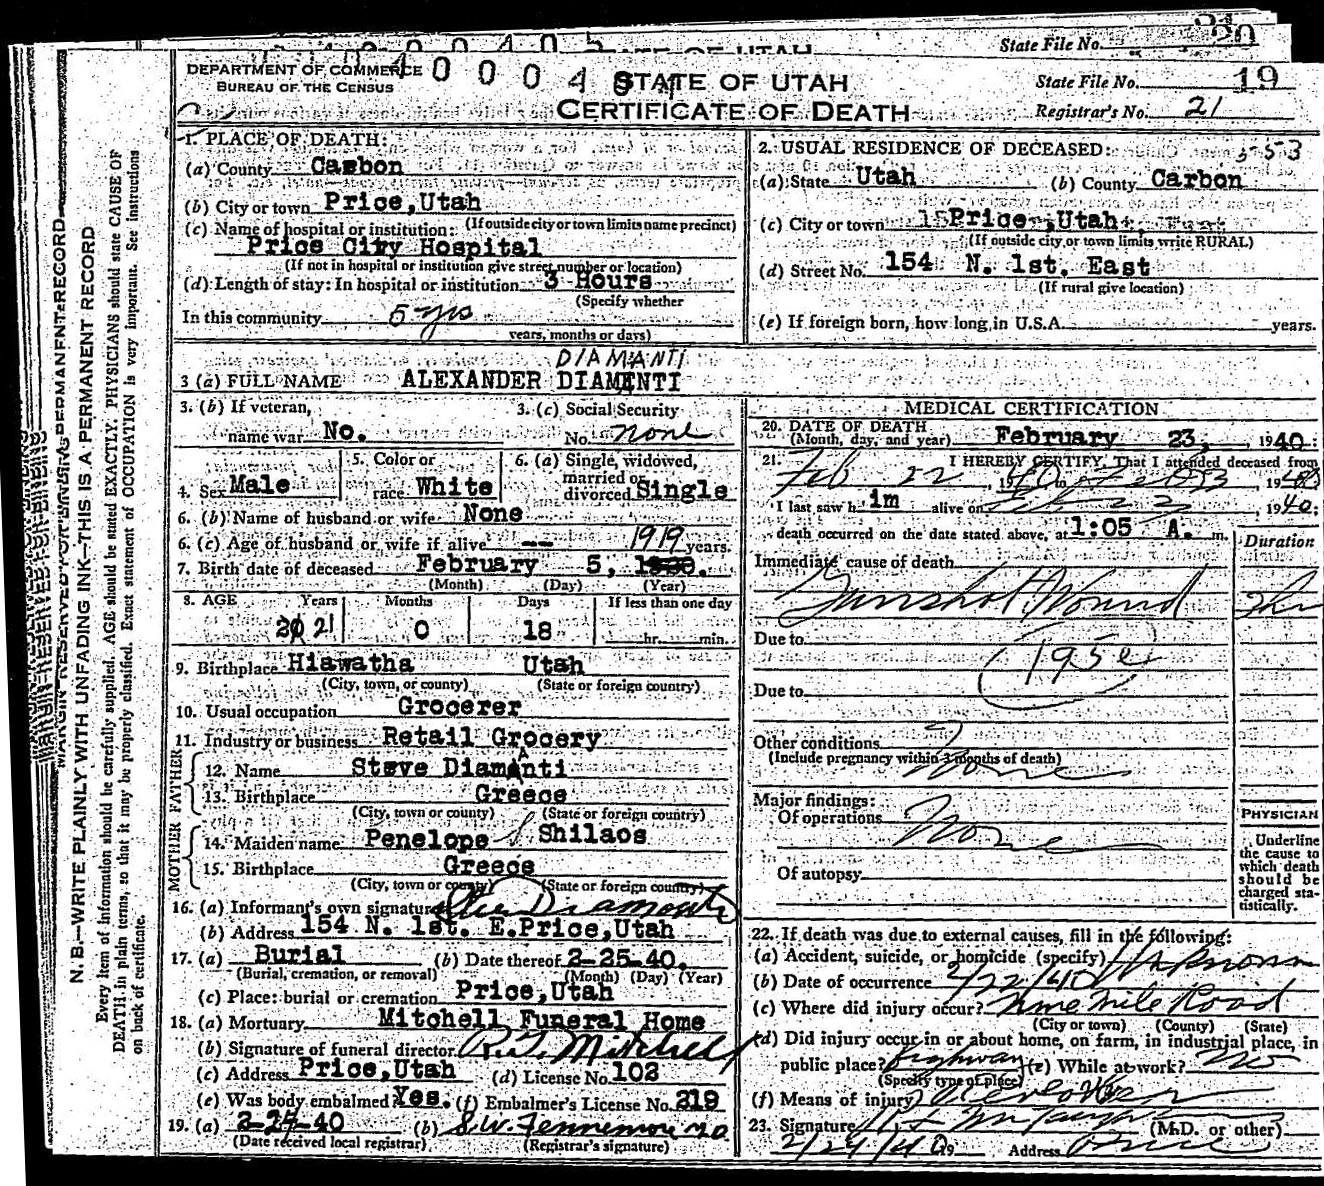 State File No. 20
DEPARTMENT OF COMMERCE
BUREAU OF THE CENSUS
STATE OF UTAH
CERTIFICATE OF DEATH
State File No. 19
Registrar's No. 21
1. PLACE OF DEATH:
(a) County Carbon
(b) City or town Price, Utah
(If outside city or town limits name precinct)
(c) Name of hospital or institution:
Price City Hospital
(If not in hospital or institution give street number or location)
(d) Length of stay: In hospital or institution 3 Hours
(Specify whether
In this community 5 yrs
years, months or days)
2. USUAL RESIDENCE OF DECEASED:
(a) State Utah (b) County Carbon
(c) City or town Price, Utah
(If outside city or town limits write RURAL)
(d) Street No. 154 N. 1st. East
(If rural give location)
(e) If foreign born, how long in U.S.A. years.
DIAMANTI
3 (a) FULL NAME ALEXANDER DIAMENTI
3. (b) If veteran, name war No.
3. (c) Social Security No. none
4. Sex Male
5. Color or race White
6. (a) Single, widowed, married or divorced Single
6. (b) Name of husband or wife None
6. (c) Age of husband or wife if alive -- years.
1919
7. Birth date of deceased February 5, 1920.
(Month) (Day) (Year)
8. AGE Years Months Days If less than one day
20 21 0 18 hr. min.
9. Birthplace Hiawatha Utah
(City, town, or county) (State or foreign country)
10. Usual occupation Grocerer
11. Industry or business Retail Grocery
FATHER
12. Name Steve Diamanti
13. Birthplace Greece
(City, town or county) (State or foreign country)
MOTHER
14. Maiden name Penelope Shilaos
15. Birthplace Greece
(City, town or county) (State or foreign country)
16. (a) Informant's own signature
(b) Address 154 N. 1st. E. Price, Utah
17. (a) Burial (b) Date thereof 2-25-40.
(Burial, cremation, or removal) (Month) (Day) (Year)
(c) Place: burial or cremation Price, Utah
18. (a) Mortuary Mitchell Funeral Home
(b) Signature of funeral director R. T. Mitchell
(c) Address Price, Utah (d) License No. 102
(e) Was body embalmed Yes. (f) Embalmer's License No. 219
19. (a) 40 (b) S.W. Fennemore
(Date received local registrar) (Registrar's signature)
MEDICAL CERTIFICATION
20. DATE OF DEATH
(Month, day, and year) February 23, 1940.
21. I HEREBY CERTIFY, That I attended deceased from
Feb 22, 1940 to Feb 23, 1940
I last saw h im alive on 1940;
death occurred on the date stated above, at 1:05 A. m.
Duration
Immediate cause of death
Gunshot Wound
Due to
195e
Due to
Other conditions
(Include pregnancy within 3 months of death)
None
Major findings:
Of operations None
Of autopsy
PHYSICIAN
Underline the cause to which death should be charged statistically.
22. If death was due to external causes, fill in the following:
(a) Accident, suicide, or homicide (specify) Unknown
(b) Date of occurrence 2/22/40
(c) Where did injury occur? Nine Mile Road
(City or town) (County) (State)
(d) Did injury occur in or about home, on farm, in industrial place, in
public place? Highway (e) While at work? No
(Specify type of place)
(f) Means of injury Revolver
23. Signature (M.D. or other)
2/24/40 19 Address Price
N. B.—WRITE PLAINLY WITH UNFADING INK—THIS IS A PERMANENT RECORD
Every item of information should be carefully supplied. AGE should be stated EXACTLY. PHYSICIANS should state CAUSE OF
DEATH in plain terms, so that it may be properly classified. Exact statement of OCCUPATION is very important. See instructions
on back of certificate.